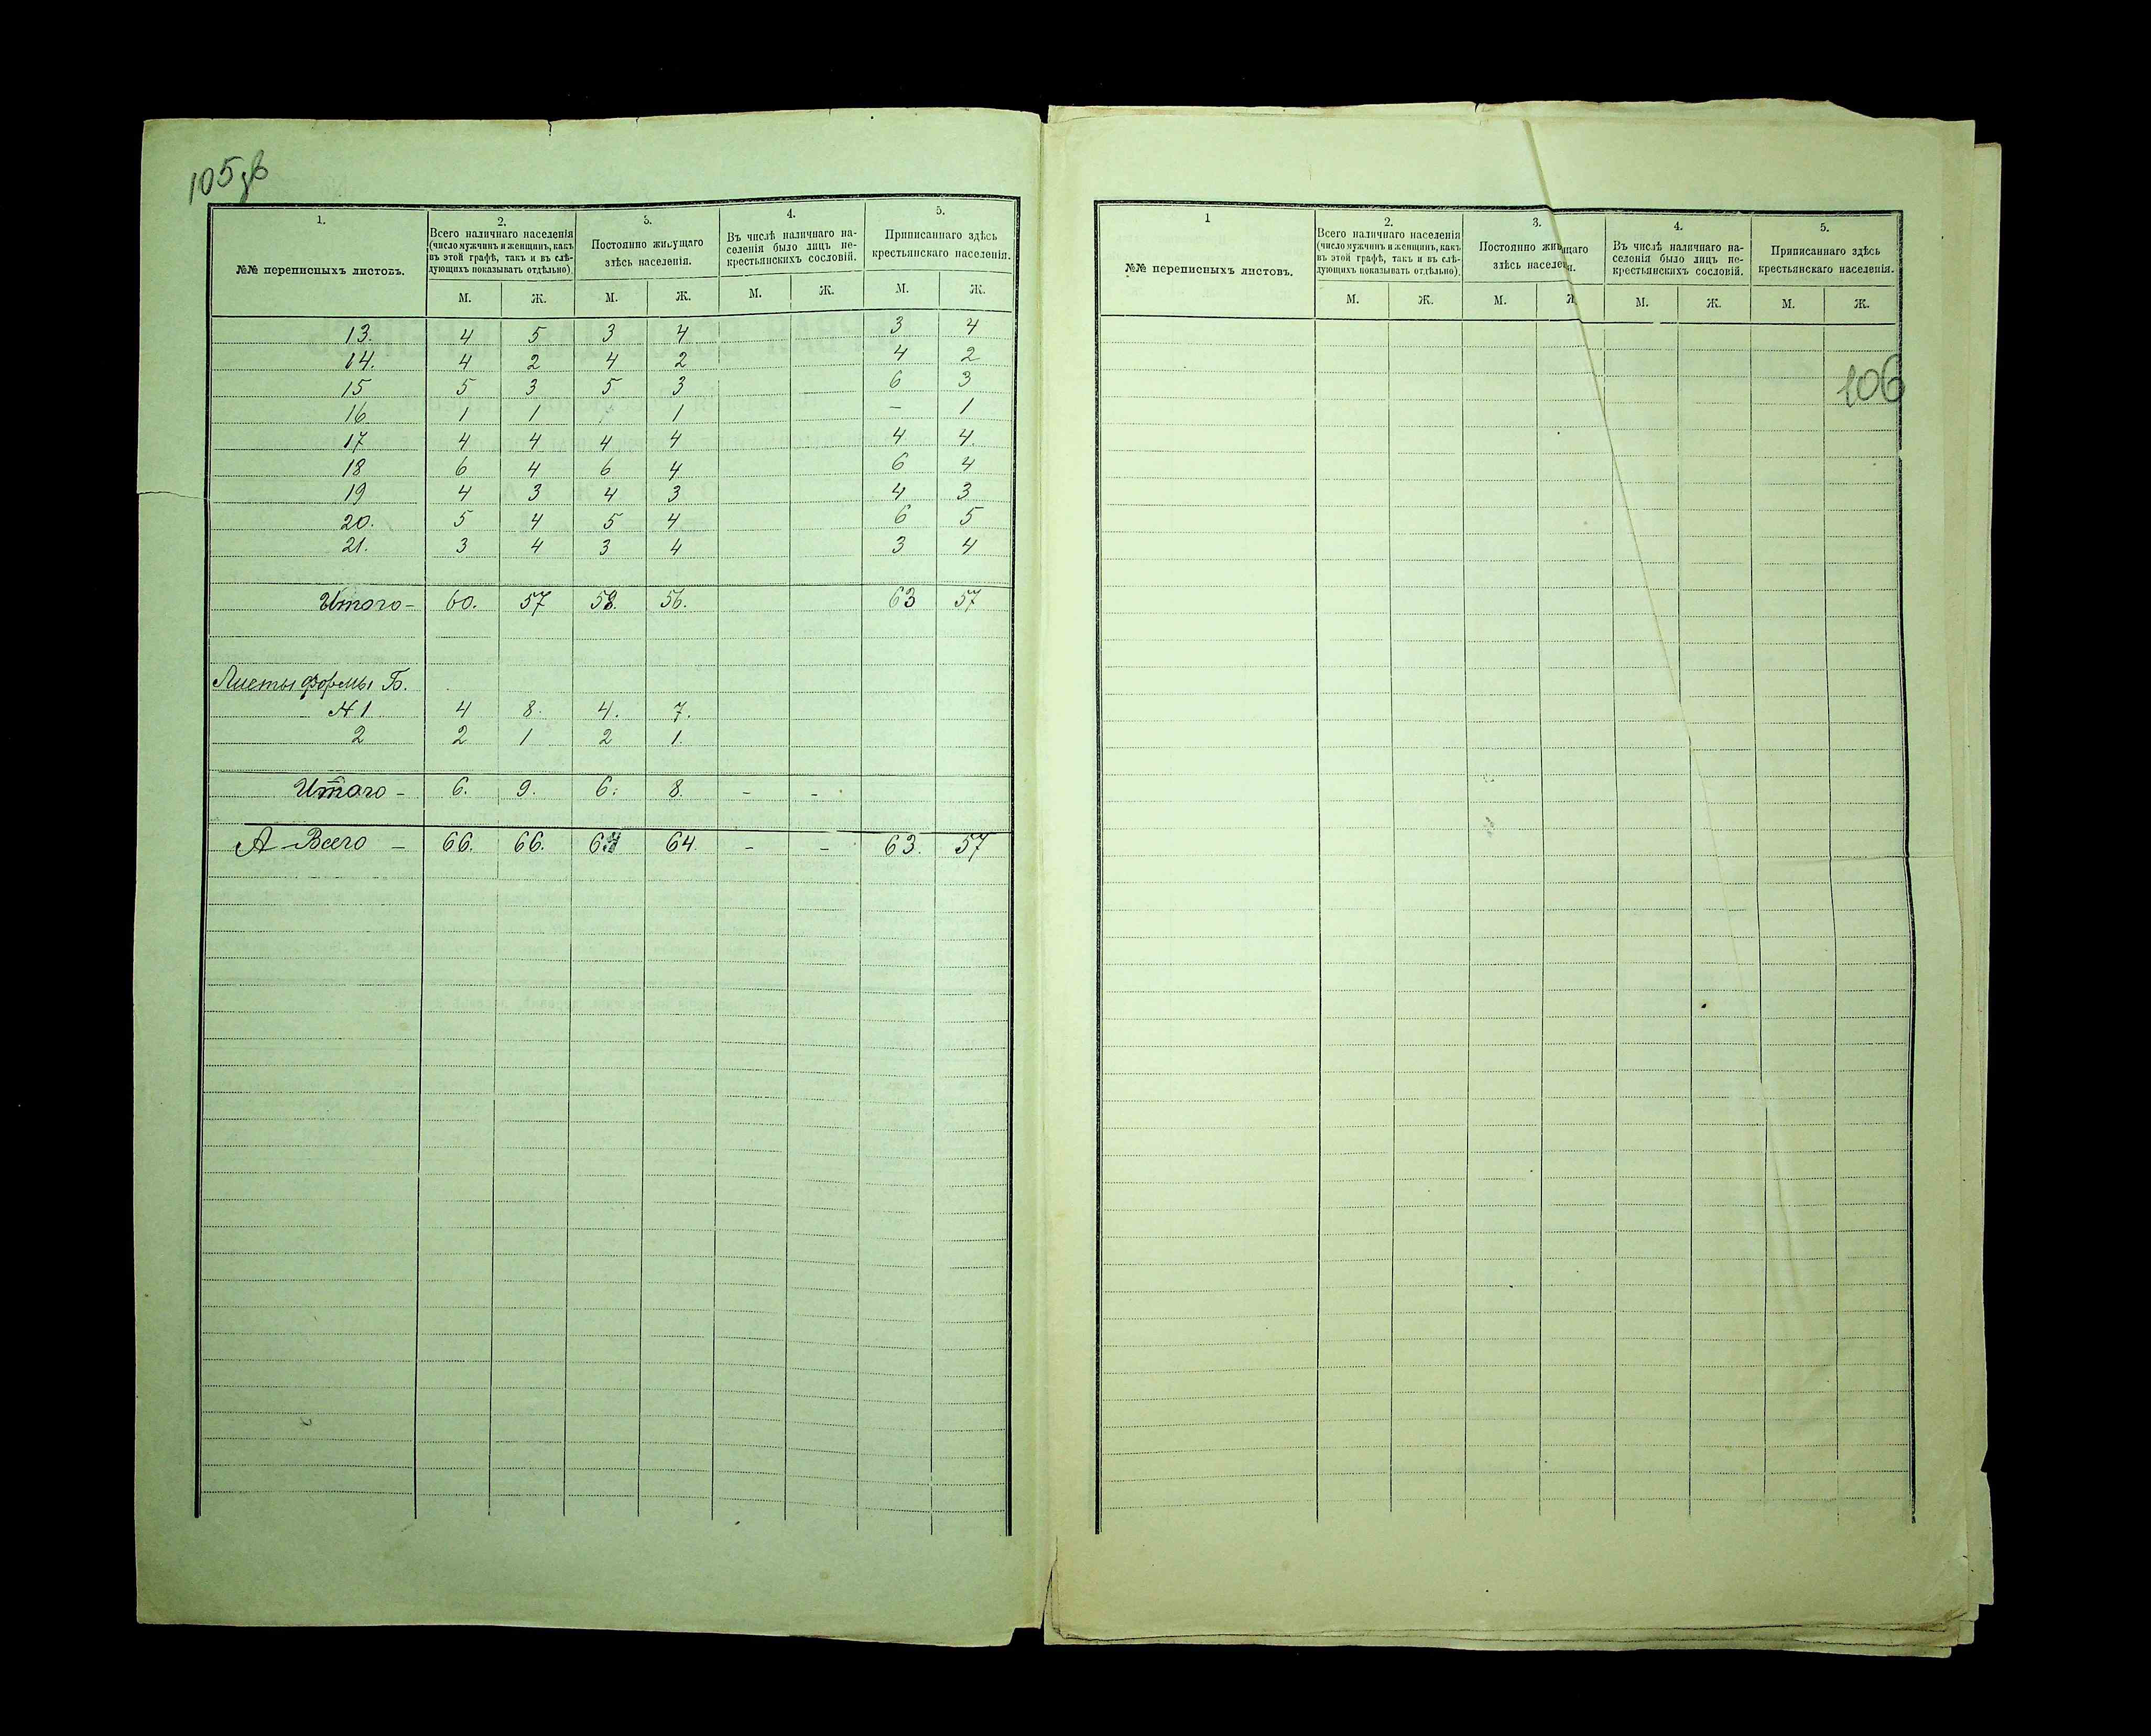 105 об
1. 2. 3. 4. 5.
№№ переписныхъ листовъ.
Всего наличнаго населенія
(число мужчинъ и женщинъ, какъ
въ этой графѣ, такъ и въ слѣ-
дующихъ показывать отдѣльно).
Постоянно живущаго
здѣсь населенія.
Въ числѣ наличнаго на-
селенія было лицъ не-
крестьянскихъ сословій.
Приписаннаго здѣсь
крестьянскаго населенія.
М. Ж. М. Ж. М. Ж. М. Ж.
13. 4 5 3 4 3 4
14. 4 2 4 2 4 2
15 5 3 5 3 6 3
16 1 1 1 – 1
17 4 4 4 4 4 4
18 6 4 6 4 6 4
19 4 3 4 3 4 3
20. 5 4 5 4 6 5
21. 3 4 3 4 3 4
Итого – 60. 57 58. 56. 63 57
Листы формы Б.
№ 1 4 8. 4. 7.
2 2 1 2 1.
Итого – 6. 9. 6. 8. – –
А Всего – 66. 66. 64 – – 63. 57
1 2. 3. 4. 5.
№№ переписныхъ листовъ.
Всего наличнаго населенія
(число мужчинъ и женщинъ, какъ
въ этой графѣ, такъ и въ слѣ-
дующихъ показывать отдѣльно).
Постоянно живущаго
здѣсь населен
Въ числѣ наличнаго на-
селенія было лицъ не-
крестьянскихъ сословій.
Приписаннаго здѣсь
крестьянскаго населенія.
М. Ж. М. Ж М. Ж. М. Ж.
106